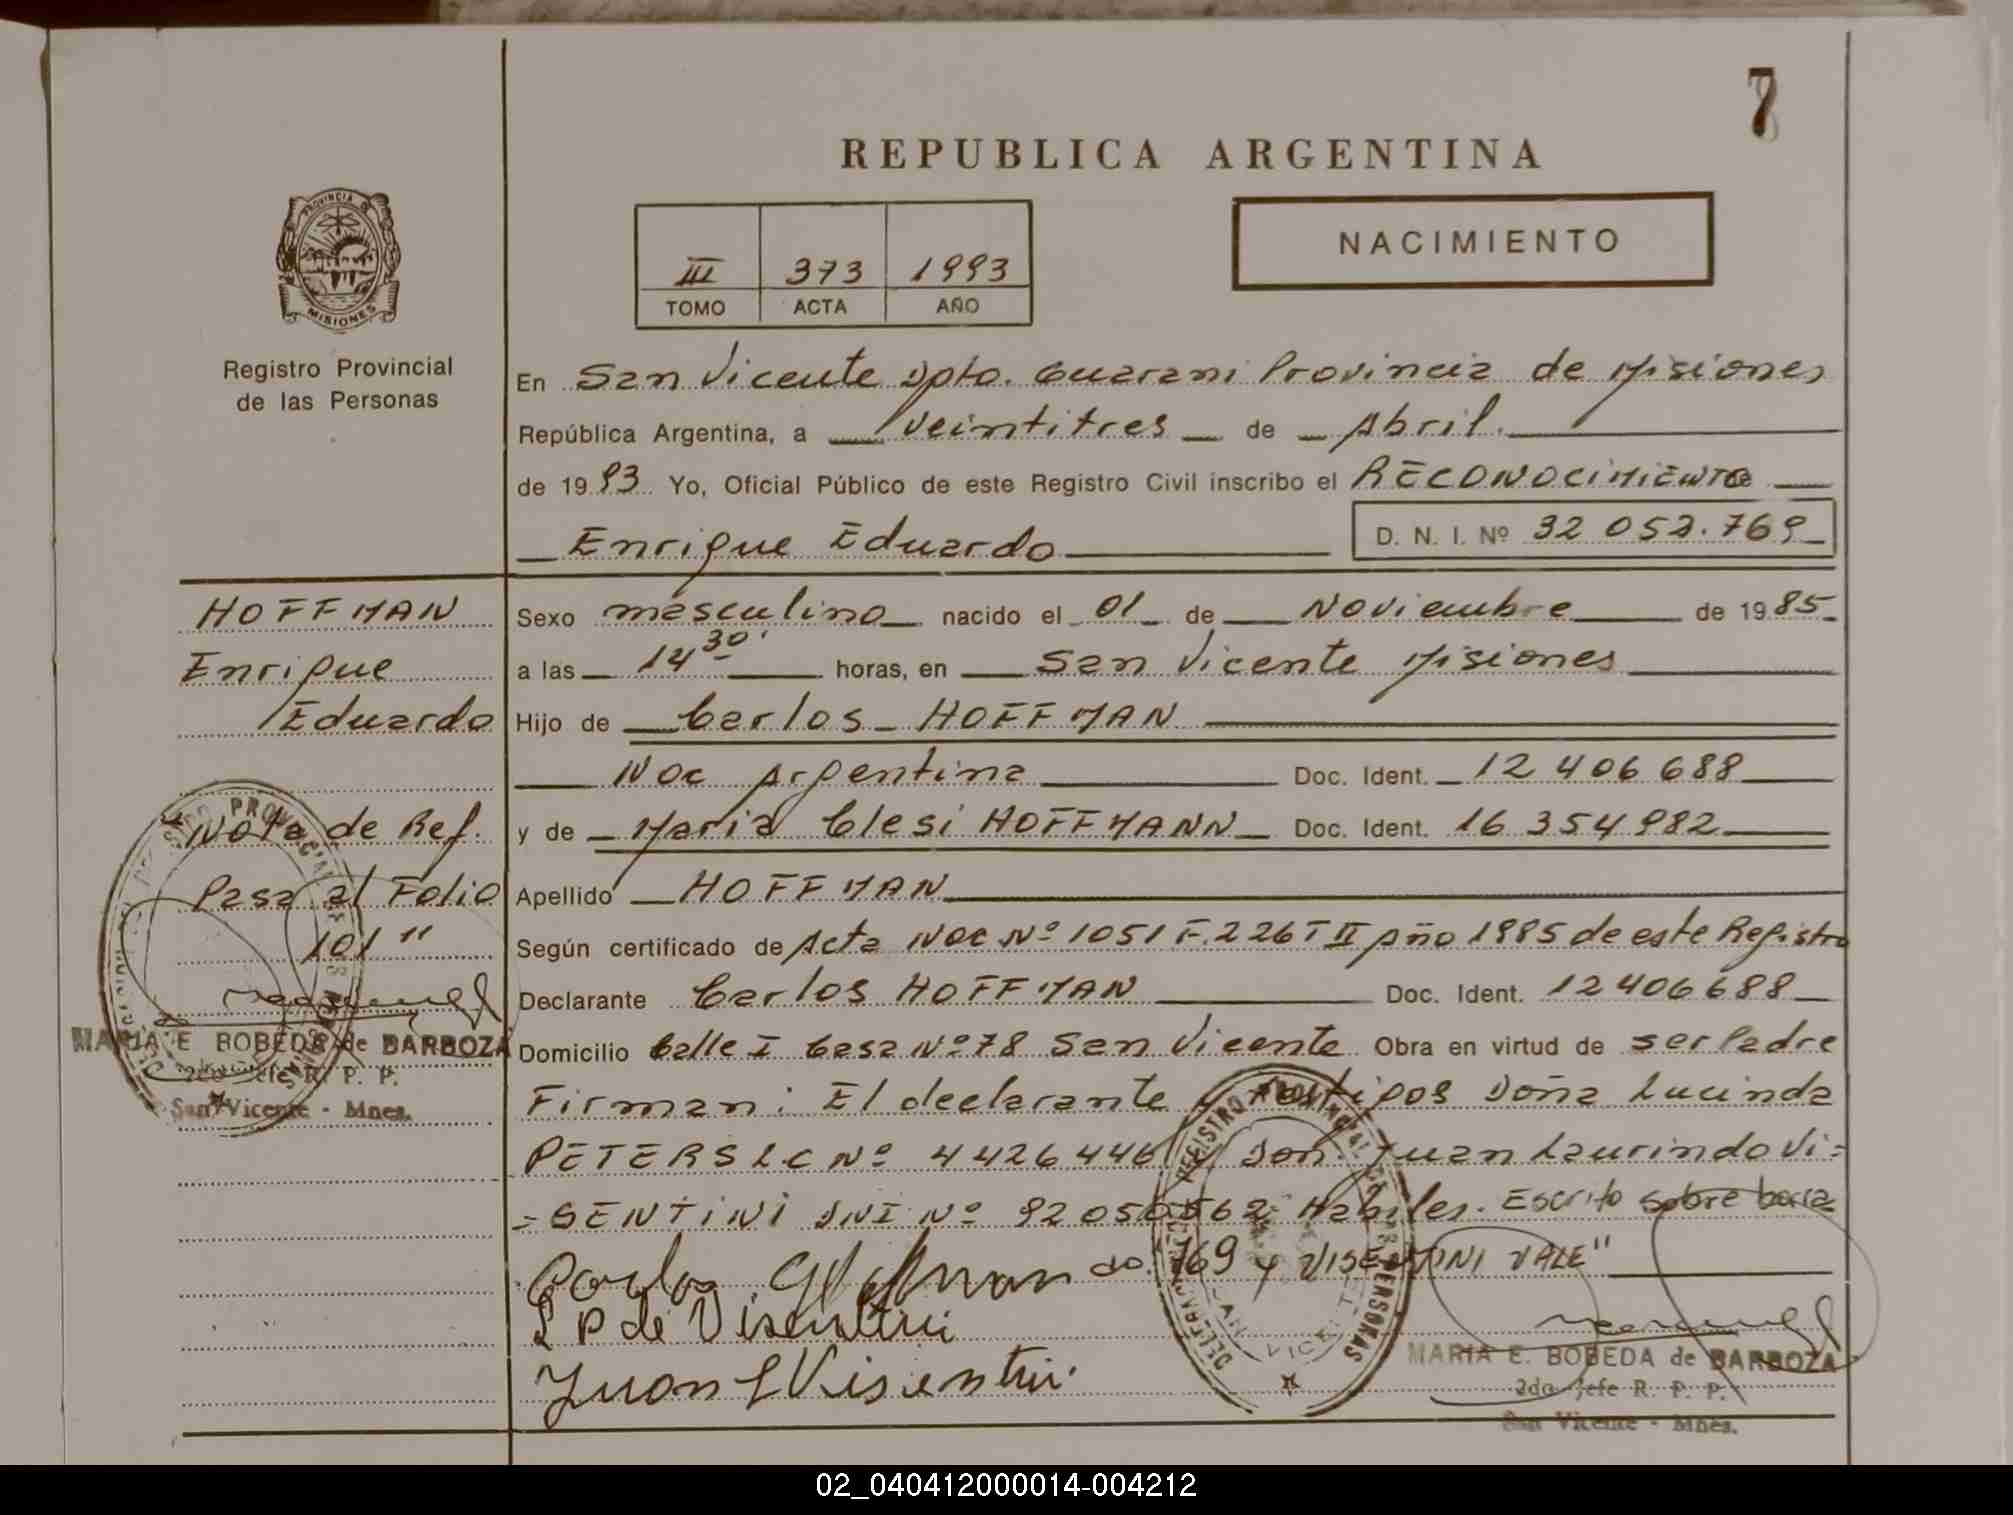 7
REPUBLICA ARGENTINA
PROVINCIA DE
MISIONES
Registro Provincial
de las Personas
III 373 1993
TOMO ACTA AÑO
NACIMIENTO
En San Vicente Dpto. Guarani Provincia de Misiones
República Argentina, a veintitres de Abril.
de 1993 Yo, Oficial Público de este Registro Civil inscribo el RECONOCIMIENTO
Enrique Eduardo D. N. I. Nº 32 052.769
HOFFMAN
Enrique
Eduardo
Sexo masculino nacido el 01 de Noviembre de 1985
a las 14 30 horas, en San Vicente Misiones
Hijo de Carlos HOFFMAN
Nac Argentina Doc. Ident. 12 406 688
y de Maria Clesi HOFFMANN Doc. Ident. 16 354 982
Apellido HOFFMAN
Según certificado de Acta Nac Nº 1051 F. 226 T II Año 1985 de este Registro
Declarante Carlos HOFFMAN Doc. Ident. 12406688
Domicilio Calle I Casa Nº 78 San Vicente Obra en virtud de ser Padre
Firman: El declarante y testigos Doña Lucinda
PETERS LC Nº 4426446 y Don Juan Laurindo Vi=
=SENTINI DNI Nº 92050562 Habiles. Escrito sobre borra
do. 769 y VISENTINI VALE"
Carlos Hoffman
L P de Visentini
Juan L Visentini
"Nota de Ref.
Pasa al Folio
101"
MARIA E BOBEDA de BARBOZA
2do Jefe R. P. P.
San Vicente - Mnes.
REGISTRO PROVINCIAL DE LAS PERSONAS
SAN VICENTE
MARIA E. BOBEDA de BARBOZA
2do Jefe R. P. P.
San Vicente - Mnes.
02_040412000014-004212